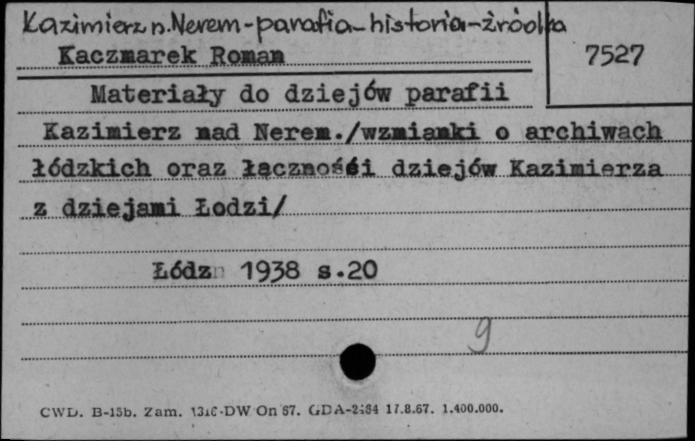 Kazimierz n. Nerem - parafia - historia - źródła
Kaczmarek Roman
7527
Materiały do dziejów parafii
Kazimierz nad Nerem./wzmianki o archiwach
łódzkich oraz łączności dziejów Kazimierza
z dziejami Łodzi/
Łódź 1938 s.20
9
CWD. B-15b. Zam. 1316-DW On 67. GDA-2484 17.8.67. 1.400.000.